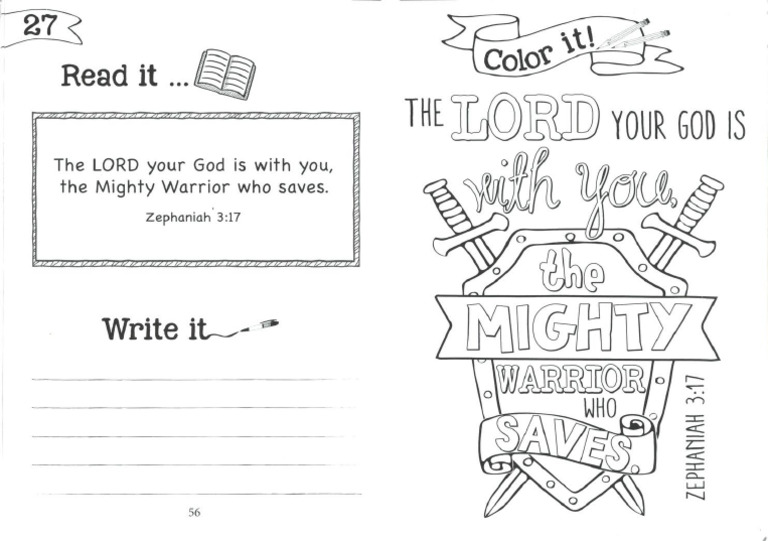 27
Read it ...
The LORD your God is with you,
the Mighty Warrior who saves.
Zephaniah 3:17
Write it
56
Color it!
THE LORD YOUR GOD IS
with you,
the
MIGHTY
WARRIOR
WHO
SAVES.
ZEPHANIAH 3:17